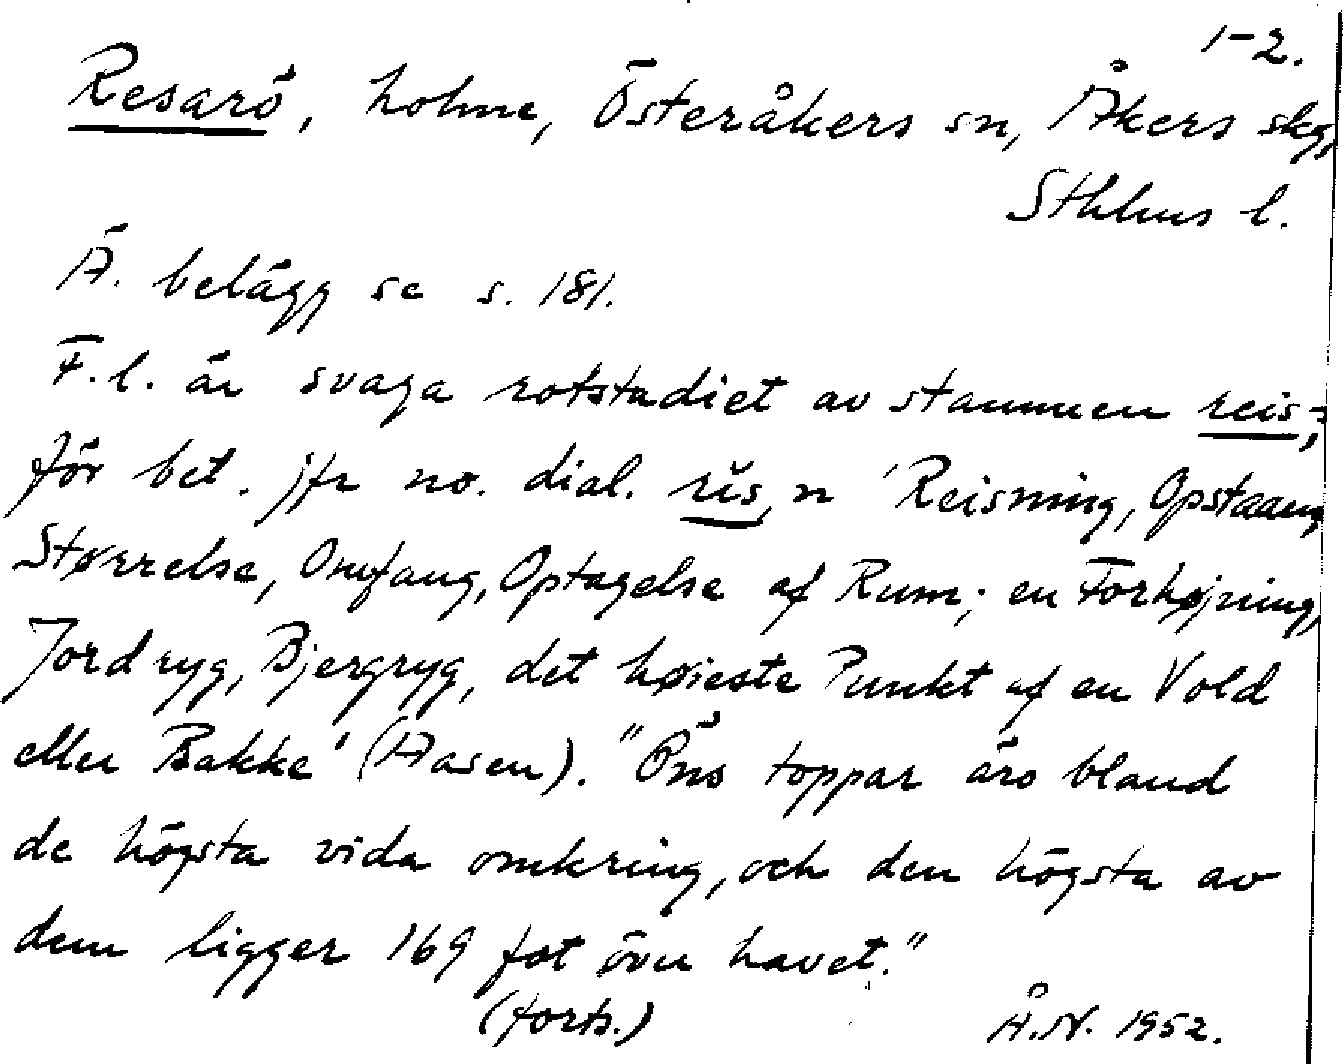 1-2.
Resarö, holme, Österåkers sn, Åkers skg,
Sthlms l.
Ä. belägg se s. 181.
F.l. är svaga rotstadiet av stammen reis-;
för bet. jfr no. dial. rĭs, n 'Reisning, Opstaaen,
Størrelse, Omfang, Optagelse af Rum; en Forhøjning,
Jordryg, Bjergryg, det høieste Punkt af en Vold
eller Bakke' (Aasen). "Öns toppar äro bland
de högsta vida omkring, och den högsta av
dem ligger 169 fot över havet."
(forts.)
Å.N. 1952.